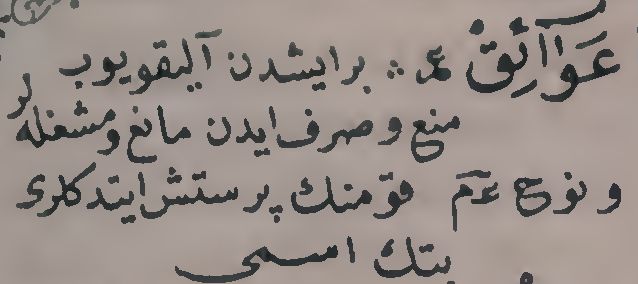 عَوَآئِقْ عر ∴ بر ایشدن آلیقویوب
منع و صرف ایدن مانع و مشغله لر
و نوح عم قومنك پرستش ایتدکلری
بتك اسمی